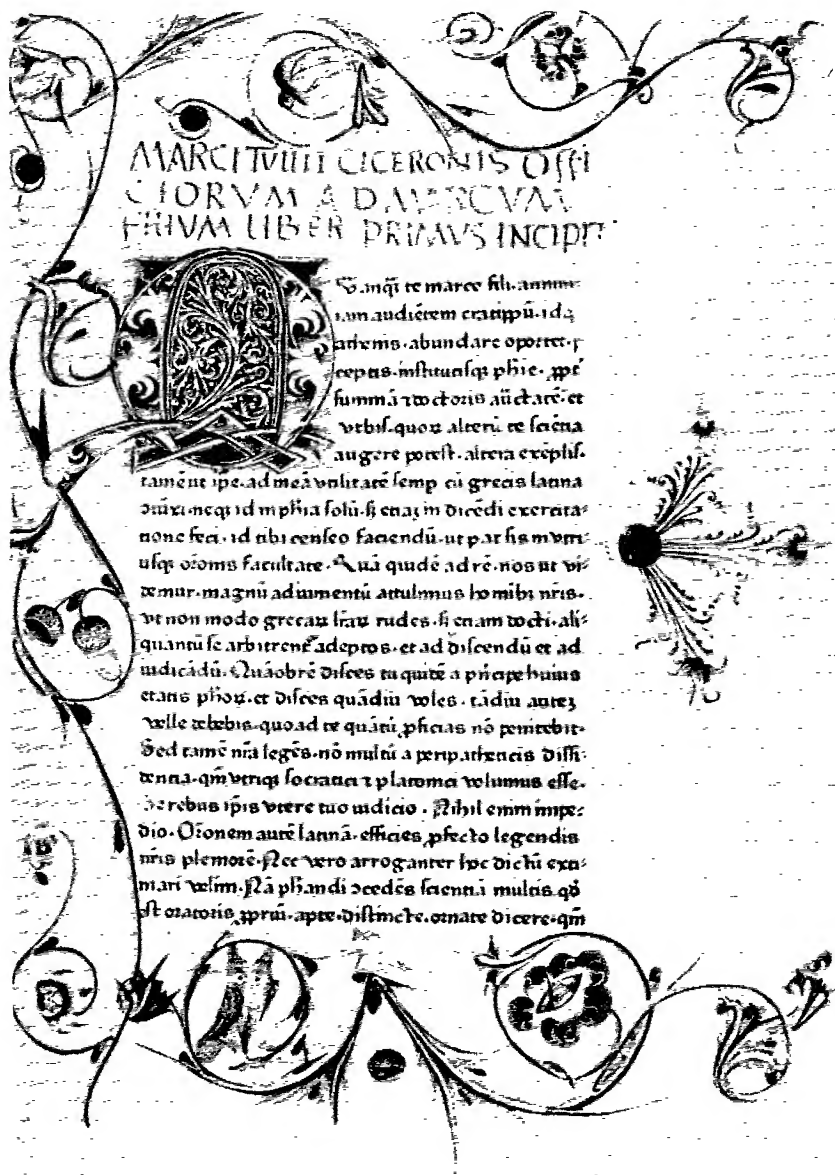 MARCI TVLLII CICERONIS Offi
CIORVM AD MARCVM
FILIVM LIBER PRIMVS INCIPIT
Vanq̃ te marce fili. annum
iam audiẽtem cratippũ. idq;
athenis. abundare oportet. p
ceptis. institutisq; phie. ppt̃
summã ⁊ doctoris auctatẽ. et
vrbis. quoꝝ alterũ te sciẽtia
augere potest. altera exẽplis.
tamẽ ut ip̃e. ad meã vtilitatẽ semp cũ grecis latina
ↄiũxi. neqꝫ id in phia solũ. s; etiaꝫ in dicẽdi exercita-
tione feci. id tibi censeo faciendũ. ut par sis in vtri-
usqꝫ or̃onis facultate. Quã quidẽ ad rẽ. nos ut vi-
demur. magnũ adiumentũ attulimus homibꝫ nr̃is.
vt non modo grecaꝝ lr̃aꝝ rudes. s; etiam docti. ali-
quantũ se arbitrent᷑ adeptos. et ad discendũ et ad
iudicãdũ. Quãobrẽ disces tu quidẽ a prĩcipe huius
etatis ph̃oꝝ. et disces quãdiu voles. tãdiu auteꝫ
velle debebis. quoad te quãtũ ꝓficias nõ penitebit.
Sed tamẽ nr̃a legẽs. nõ multũ a peripatheticis dissi-
dentia. qm̃ vtriqꝫ socratici ⁊ platonici volumus esse.
De rebus ip̃is vtere tuo iudicio. Nihil enim impe-
dio. Or̃onem autẽ latinã. efficies ꝓfecto legendis
nr̃is pleniorẽ. Nec vero arroganter hoc dictũ exti-
mari velim. Nã ph̃andi ↄcedẽs scientiã multis. qđ
est oratoris ꝓpriũ. apte. distincte. ornate dicere. qm̃